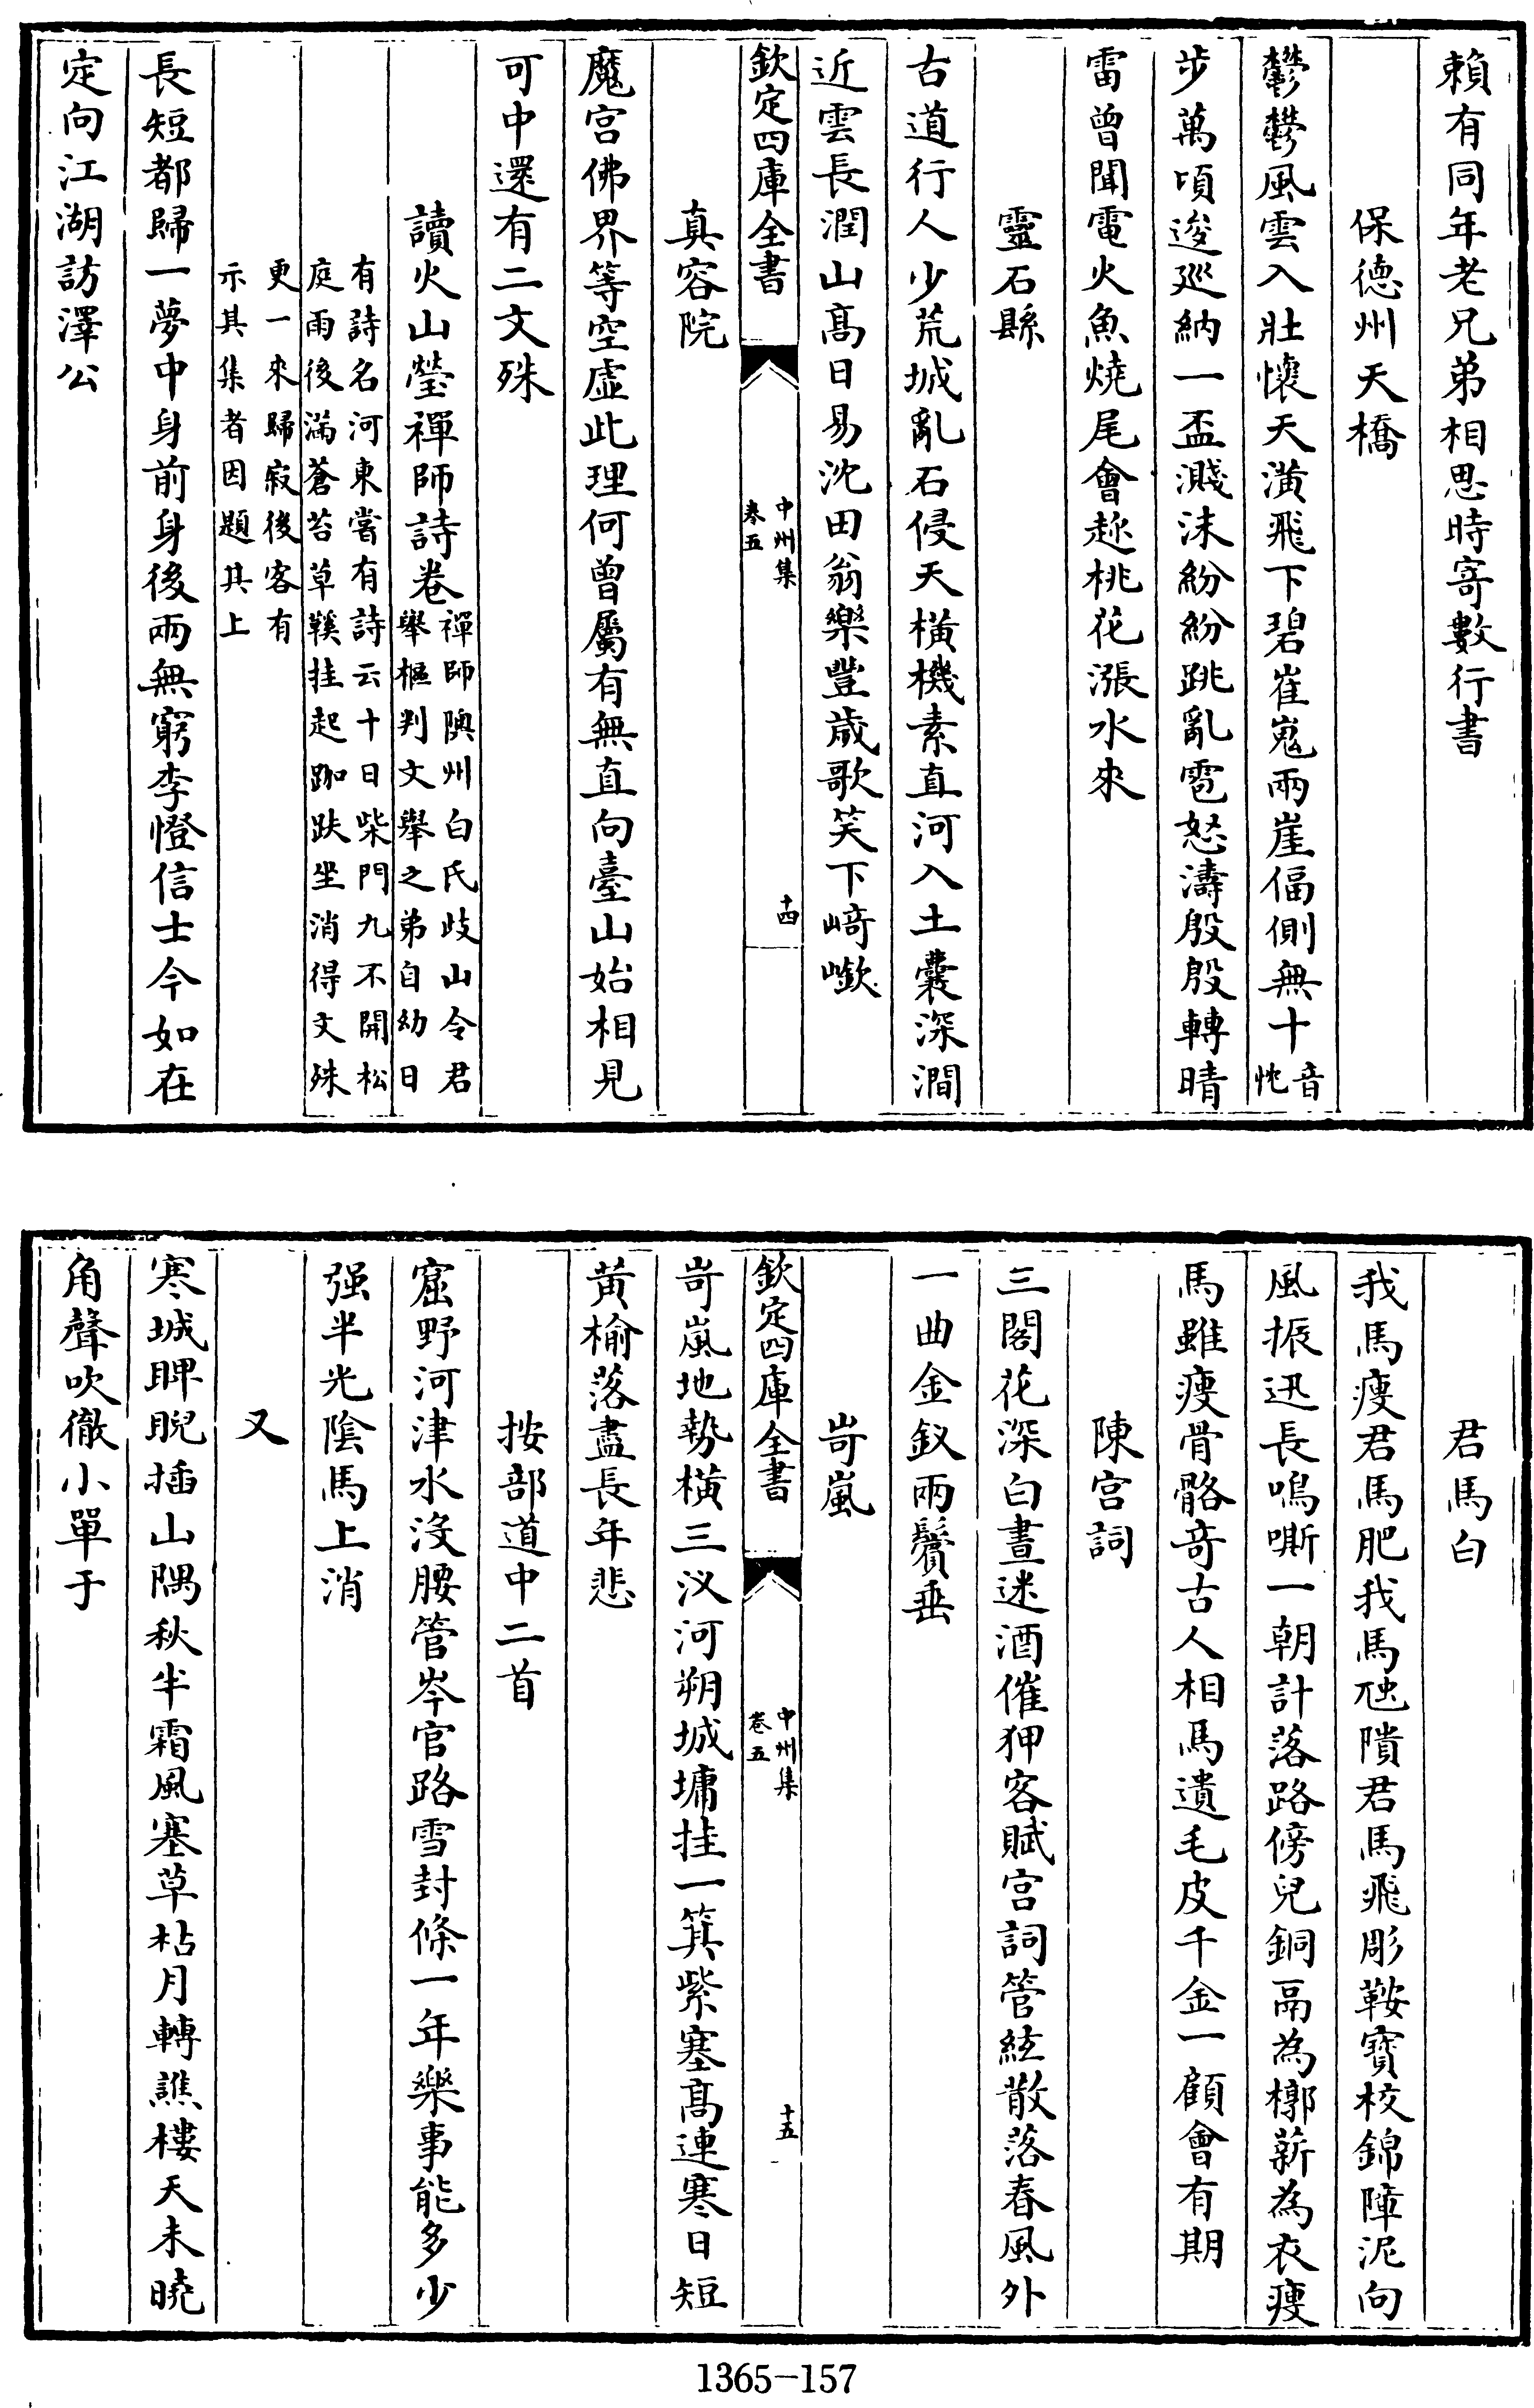 賴有同年老兄弟相思時寄數行書
保德州天橋
鬱鬱風雲入壯懷天潢飛下碧崔嵬兩崖偪側無十音忱
步萬頃逡廵納一盃濺沫紛紛跳亂雹怒濤殷殷轉晴
雷曾聞電火魚燒尾會趂桃花漲水來
靈石縣
古道行人少荒城亂石侵天橫機素直河入土囊深澗
近雲長潤山髙日易沈田翁樂豐歲歌笑下﨑嶔
欽定四庫全書
中州集
卷五
十四
真容院
魔宫佛界等空虛此理何曾屬有無直向臺山始相見
可中還有二文殊
讀火山瑩禪師詩卷
禪師隩州白氏歧山令君
舉樞判文舉之弟自幼日
有詩名河東嘗有詩云十日柴門九不開松
庭雨後滿蒼苔草鞵挂起跏趺坐消得文殊
更一來歸寂後客有
示其集者因題其上
長短都歸一夢中身前身後兩無窮李憕信士今如在
定向江湖訪澤公
君馬白
我馬瘦君馬肥我馬虺隤君馬飛彫鞍寶校錦障泥向
風振迅長鳴嘶一朝計落路傍兒銅鬲為槨薪為衣瘦
馬雖瘦骨骼竒古人相馬遺毛皮千金一顧會有期
陳宫詞
三閣花深白晝迷酒催狎客賦宫詞管絃散落春風外
一曲金釵兩鬢垂
岢嵐
欽定四庫全書
中州集
卷五
十五
岢嵐地勢橫三汊河朔城墉挂一箕紫塞髙連寒日短
黄榆落盡長年悲
按部道中二首
窟野河津水沒腰管岑官路雪封條一年樂事能多少
强半光陰馬上消
又
寒城睥睨插山隅秋半霜風塞草枯月轉譙樓天未曉
角聲吹徹小單于
1365-157